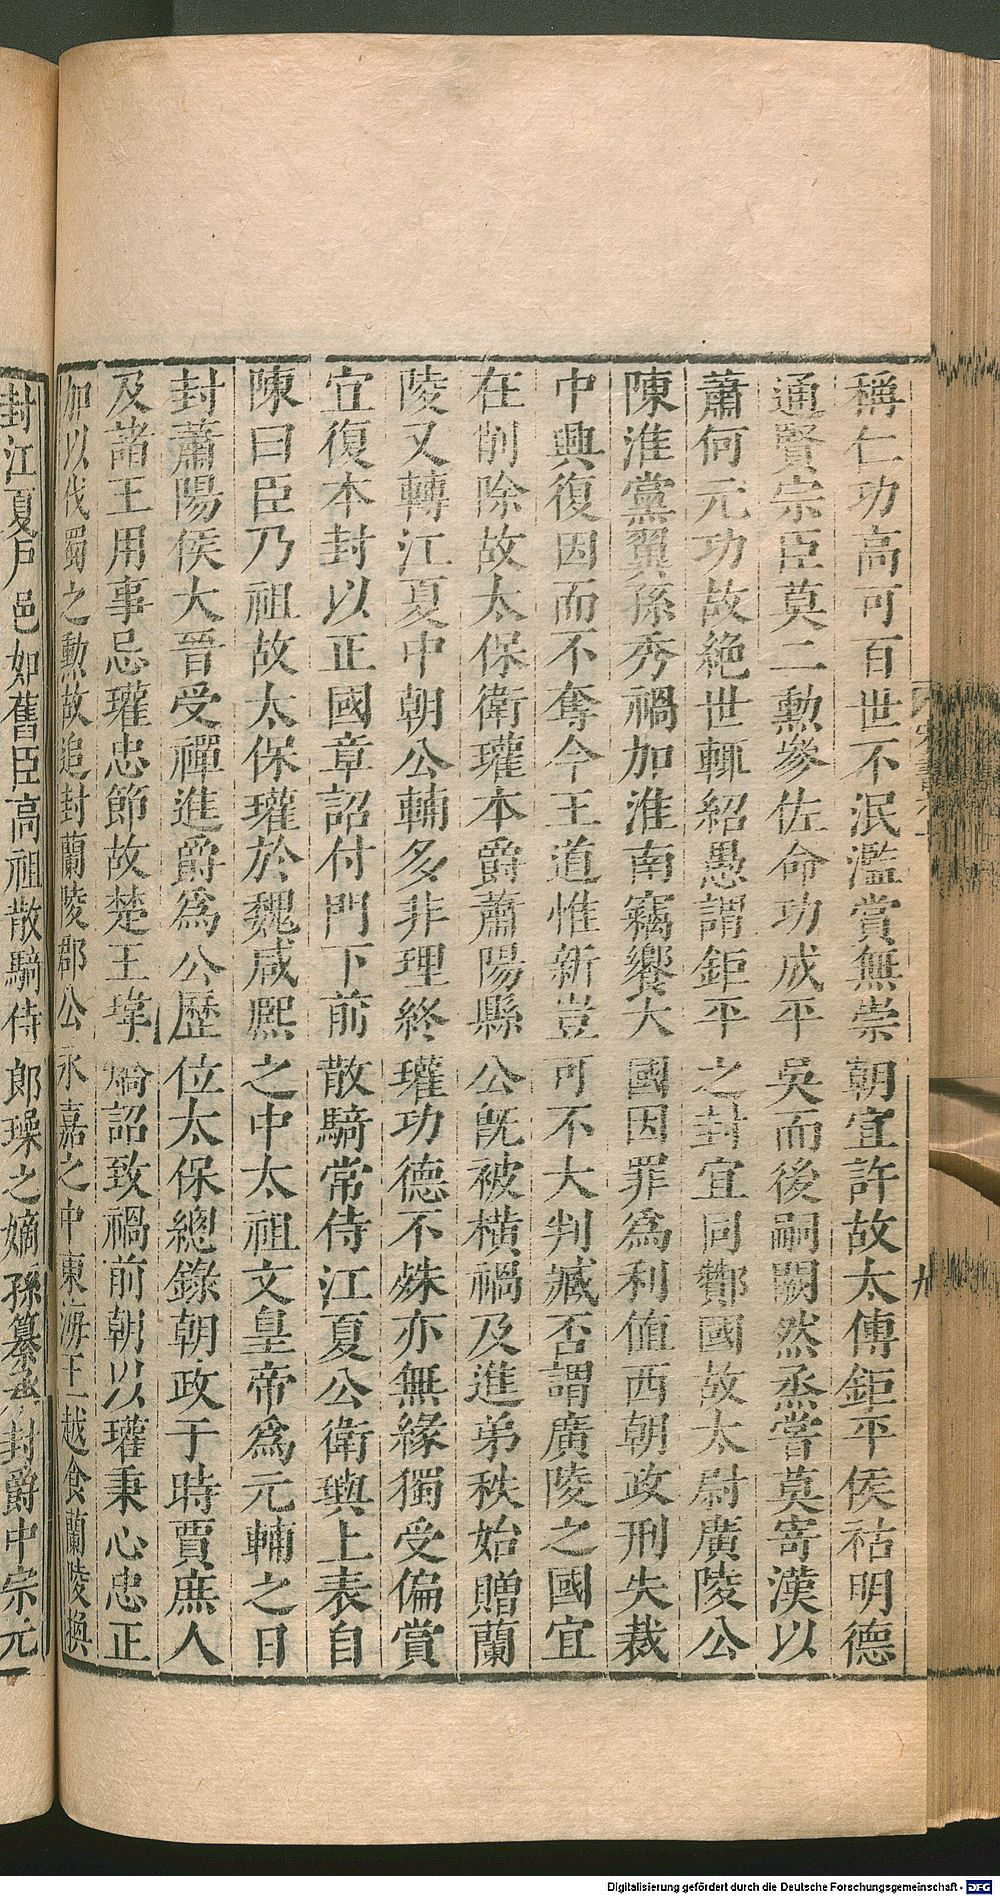 稱仁功高可百世不泯濫賞無崇朝宜許故太傅鉅平侯祜明德
通賢宗臣莫二勳參佐命功成平吳而後嗣闕然烝嘗莫寄漢以
蕭何元功故絕世輒紹愚謂鉅平之封宜同酇國故太尉廣陵公
陳淮黨翼孫秀禍加淮南竊饗大國因罪為利值西朝政刑失裁
中興復因而不奪今王道惟新豈可不大判臧否謂廣陵之國宜
在削除故太保衛瓘本爵蕭陽縣公旣被橫禍及進弟秩始贈蘭
陵又轉江夏中朝公輔多非理終瓘功德不殊亦無緣獨受偏賞
宜復本封以正國章詔付門下前散騎常侍江夏公衛璵上表自
陳曰臣乃祖故太保瓘於魏咸熙之中太祖文皇帝為元輔之日
封蕭陽侯大晉受禪進爵為公歷位太保總錄朝政于時賈庶人
及諸王用事忌瓘忠節故楚王瑋矯詔致禍前朝以瓘秉心忠正
加以伐蜀之勳故追封蘭陵郡公永嘉之中東海王越食蘭陵換
封江夏戶邑如舊臣高祖散騎侍郎璪之嫡孫纂承封爵中宗元
九
Digitalisierung gefördert durch die Deutsche Forschungsgemeinschaft - DFG